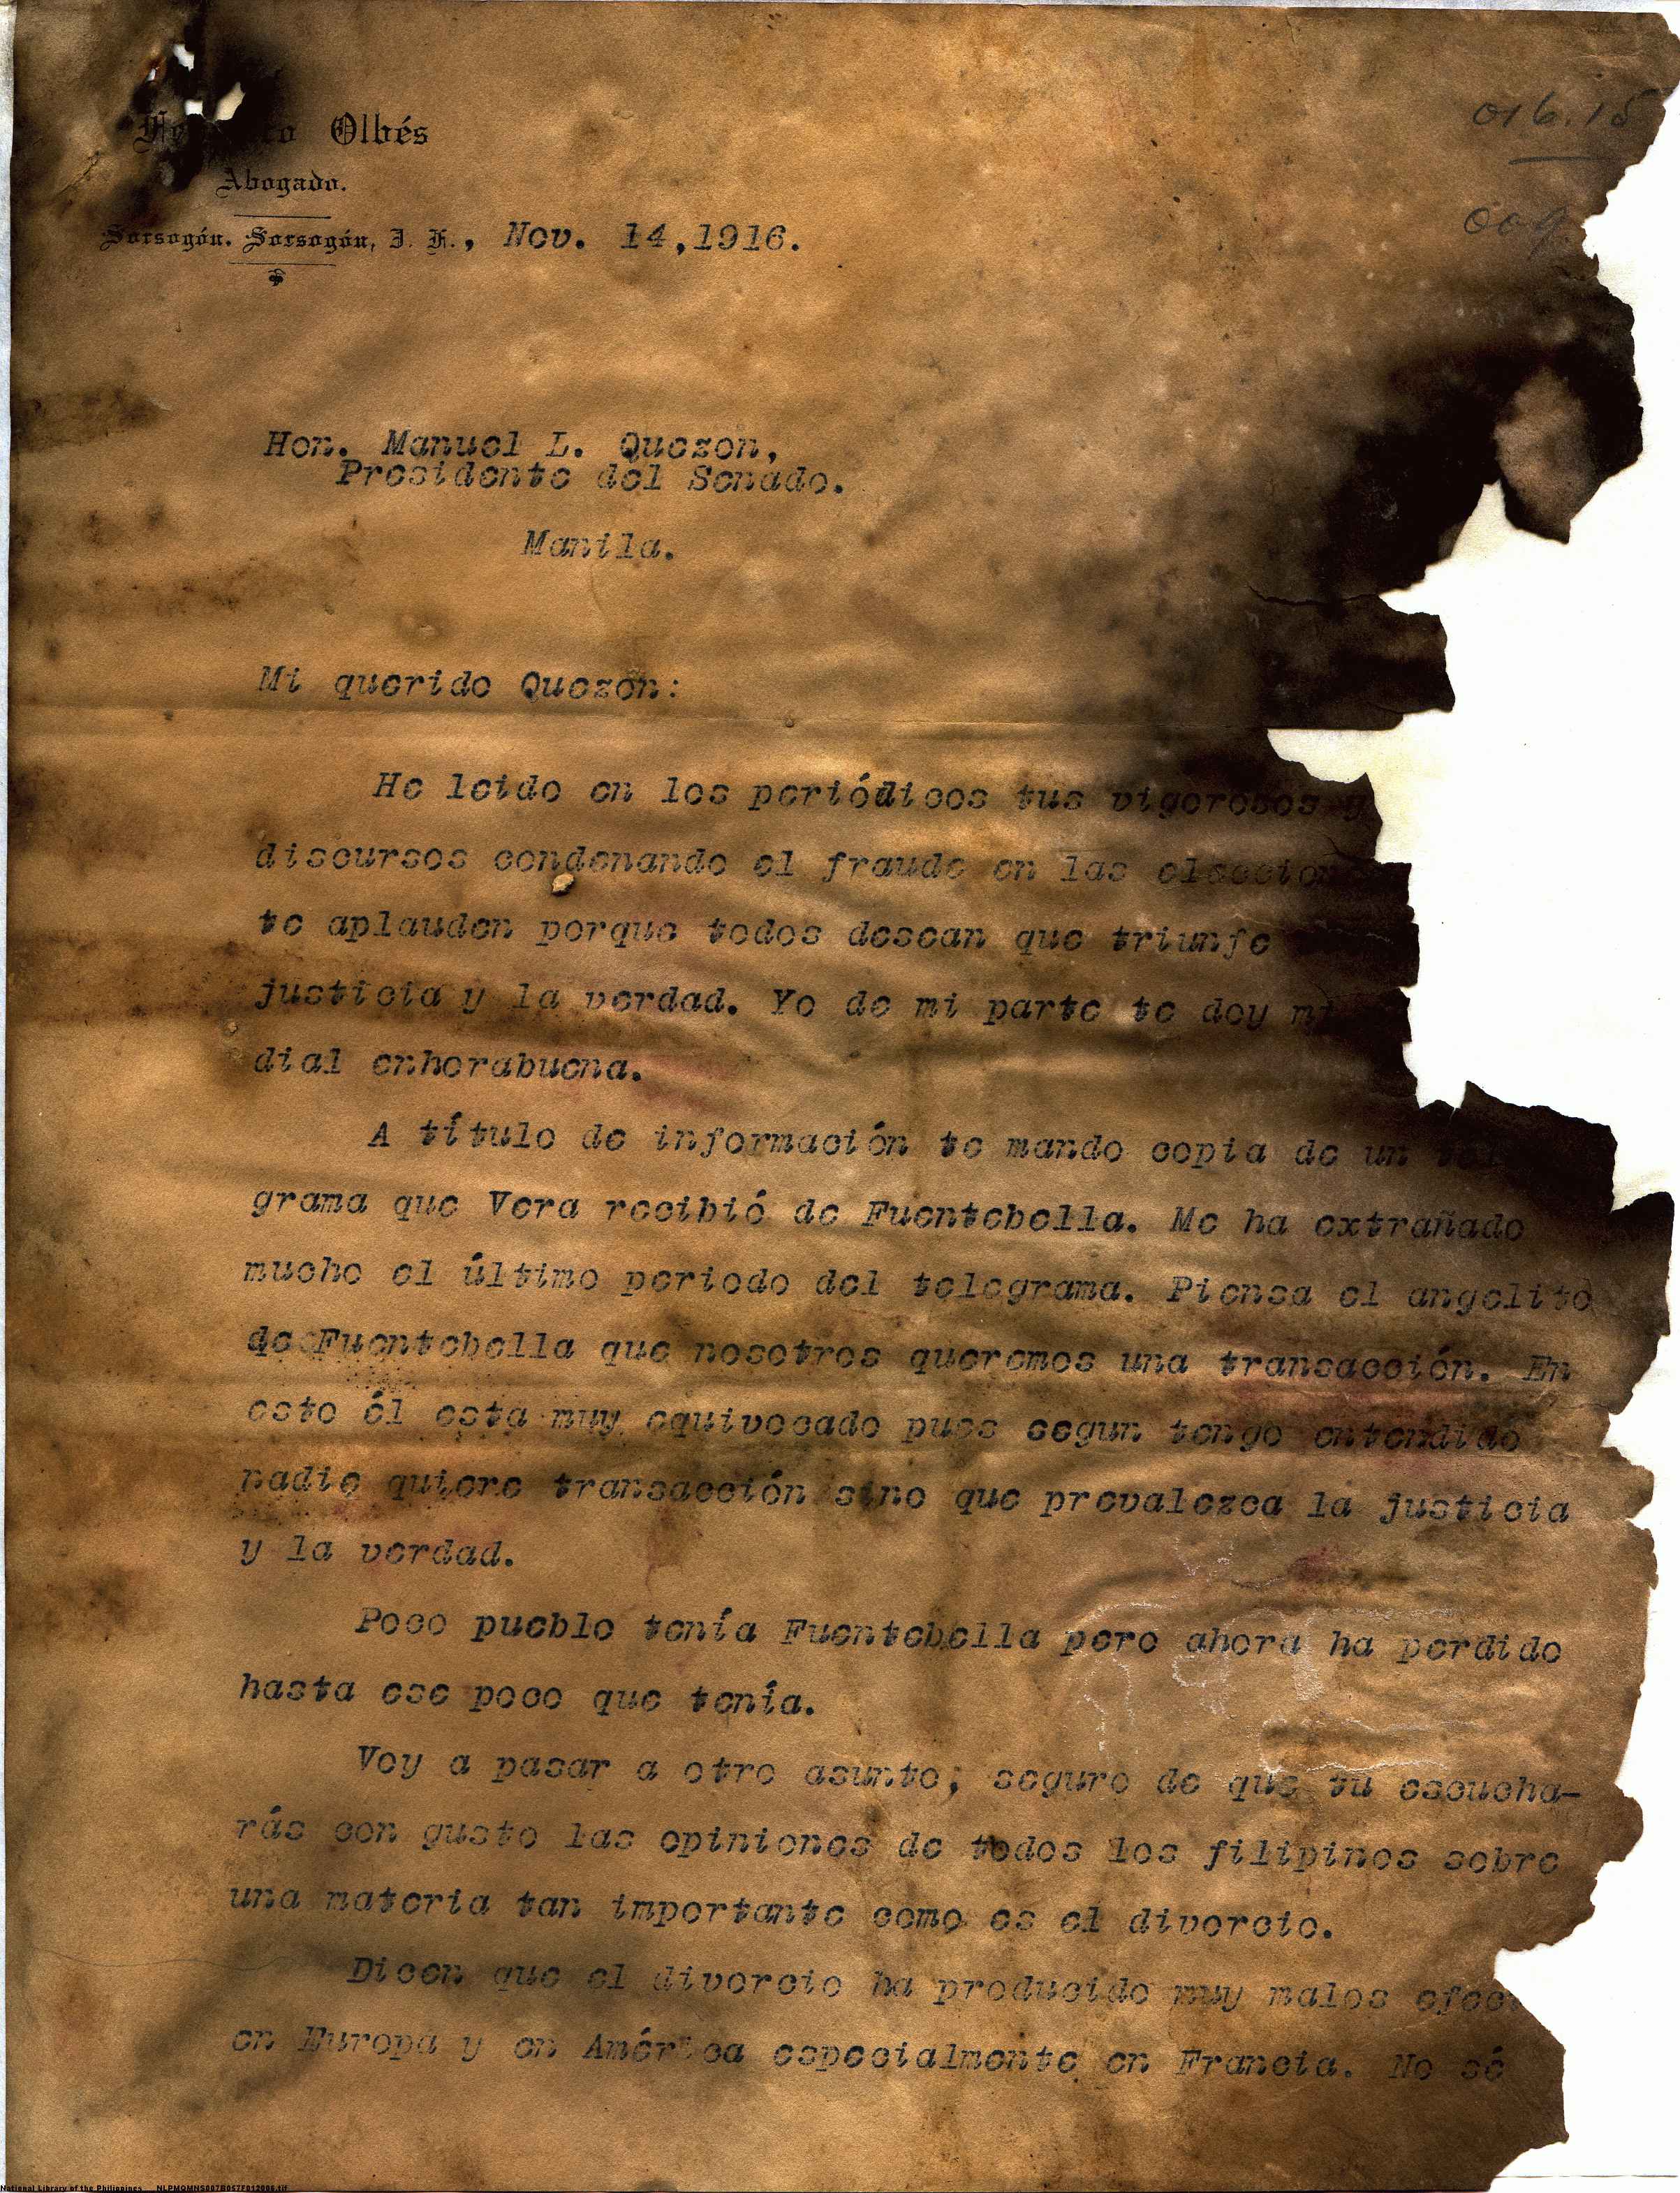 Olbés
Abogado.
Sorsogón, Sorsogón, I. F., Nov. 14, 1916.
016.15
009
Hon. Manuel L. Quezon,
Presidente del Senado.
Manila.
Mi querido Quezon:
He leido en los periódicos tus vigorosos y
discursos condenando el fraude en las
te aplauden porque todos desean que triunfe
justicia y la verdad. Yo de mi parte te doy mi
dial enhorabuena.
A título de información te mando copia de un
grama que Vera recibió de Fuentebella. Me ha extrañado
mucho el último periodo del telegrama. Piensa el angelito
de Fuentebella que nosotros queremos una transacción. En
esto él esta muy equivocado pues segun tengo entendido
nadie quiere transacción sino que prevalezca la justicia
y la verdad.
Poco pueblo tenía Fuentebella pero ahora ha perdido
hasta ese poco que tenía.
Voy a pasar a otro asunto, seguro de que tu escucha-
rás con gusto las opiniones de todos los filipinos sobre
una materia tan importante como es el divorcio.
Dicen que el divorcio ha producido muy malos
en Europa y en América especialmente en Francia. No sé
National Library of the Philippines